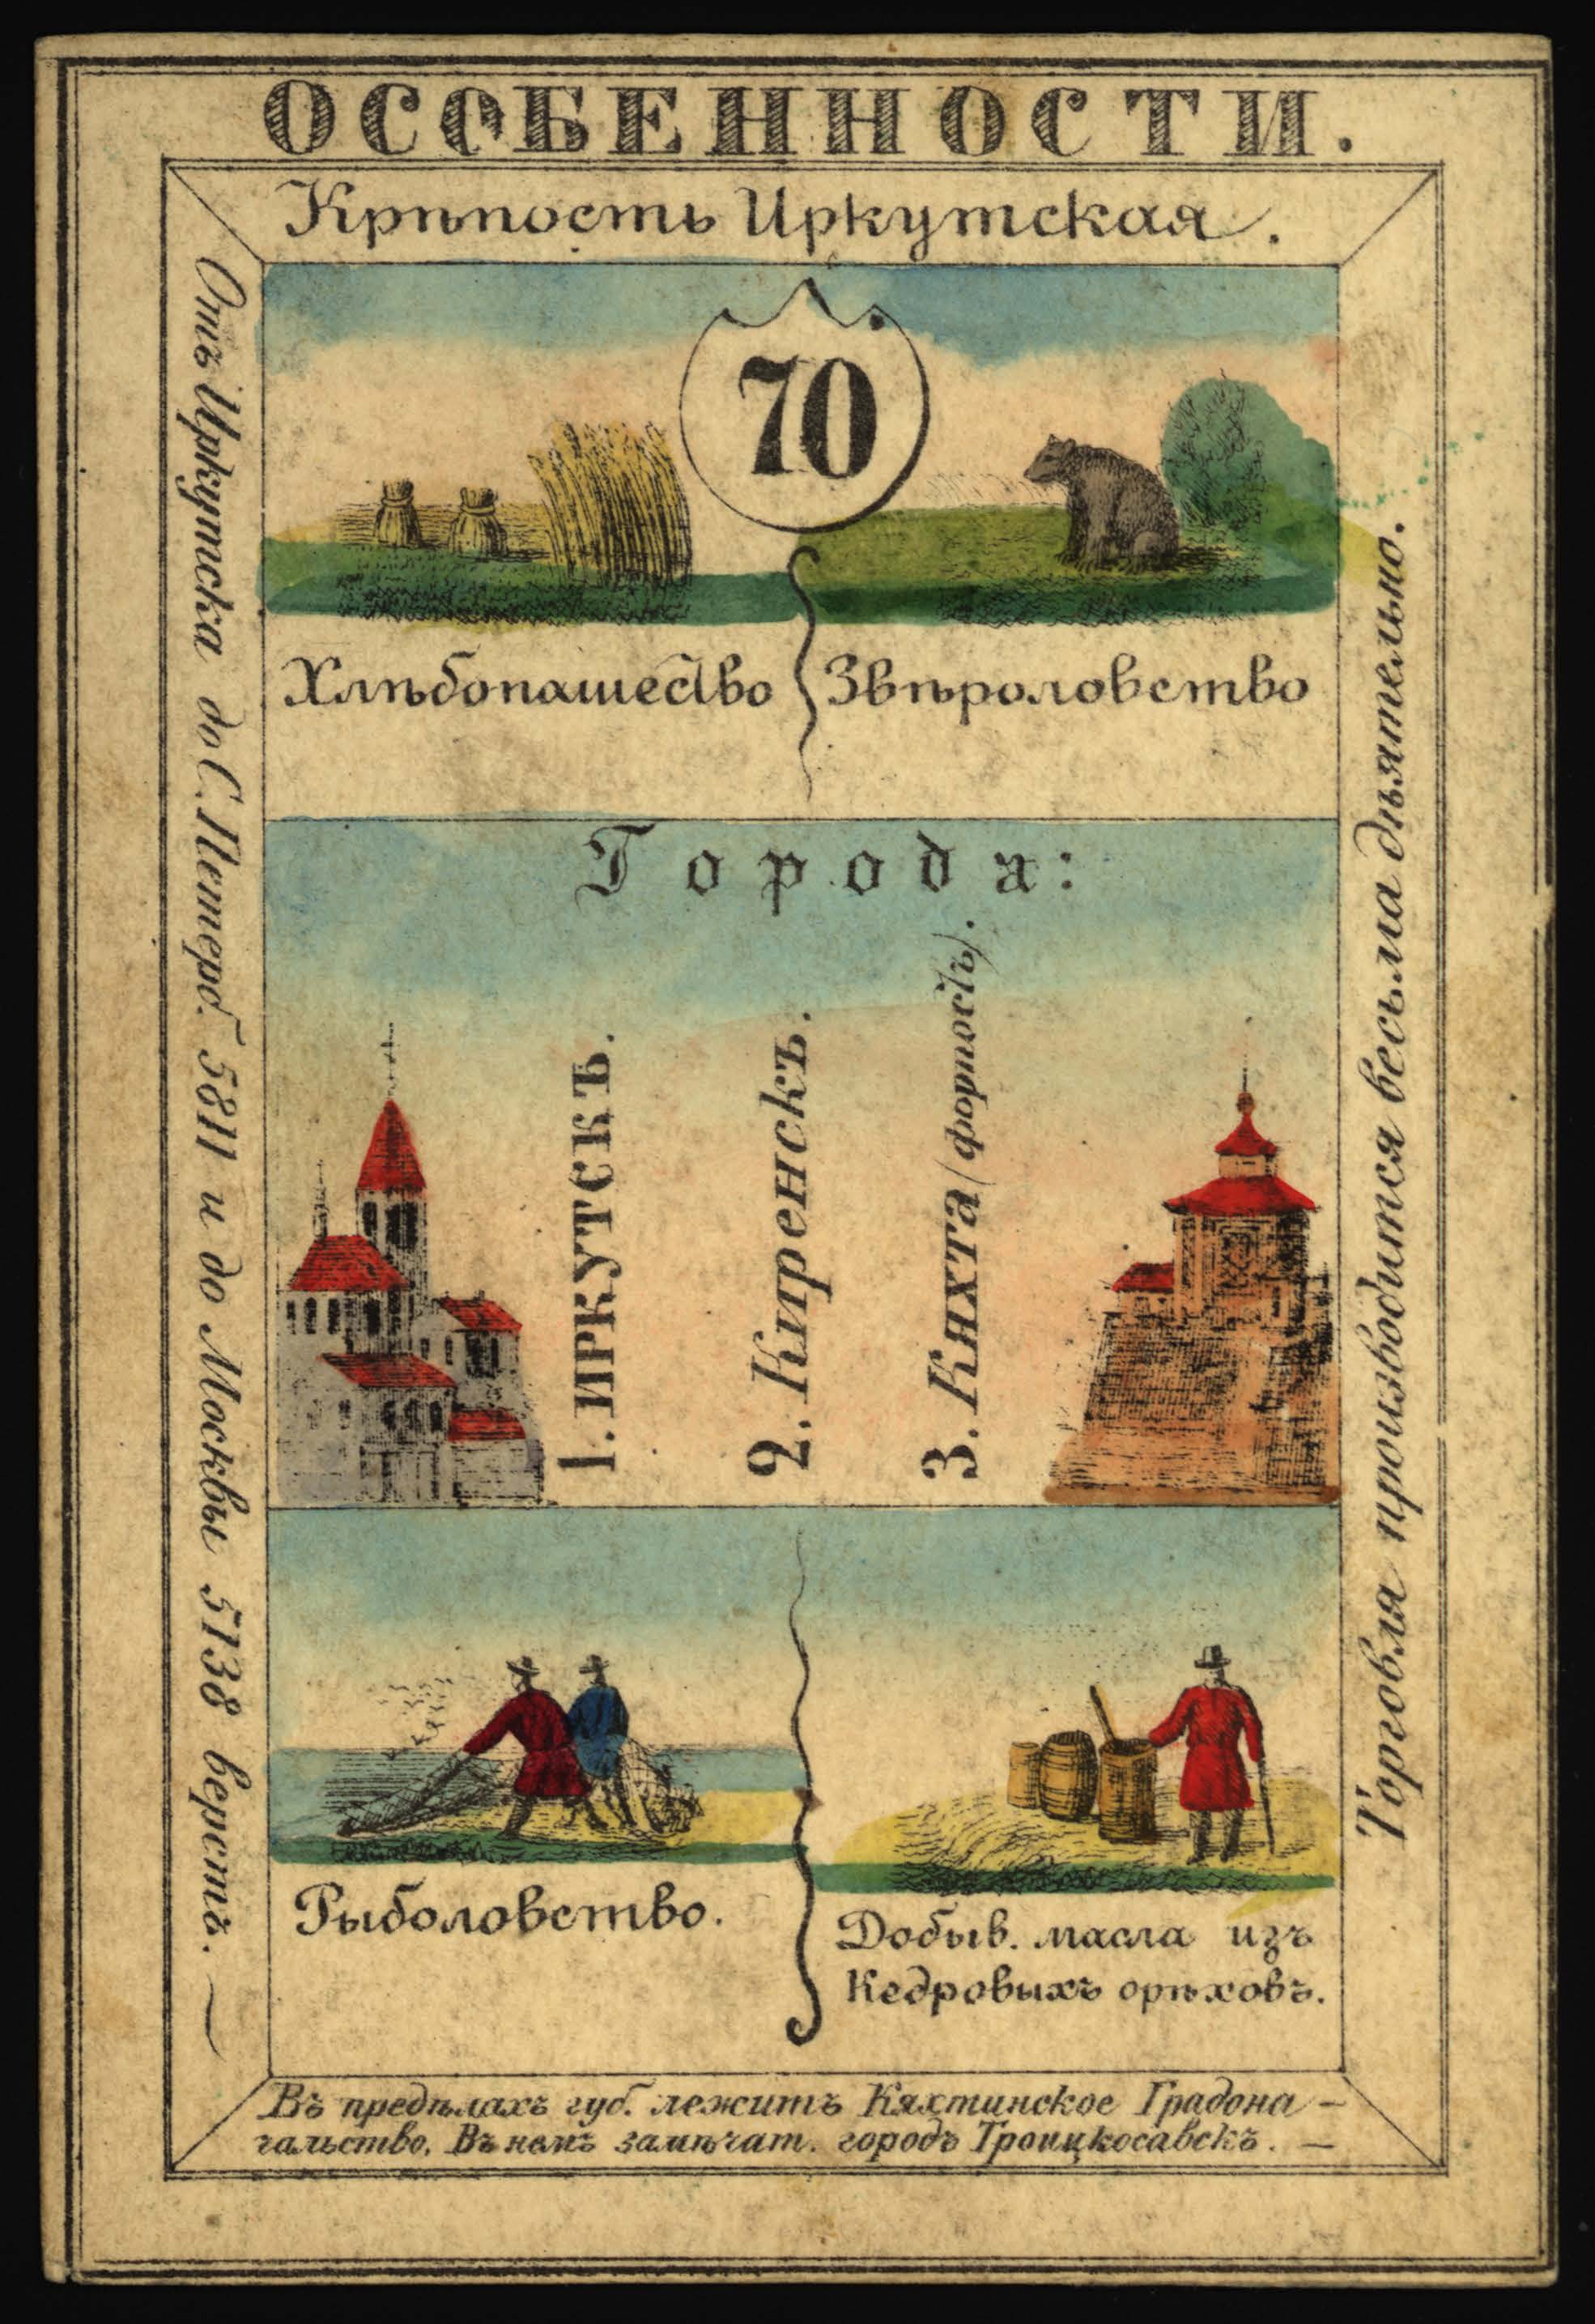 ОСОБЕННОСТИ.
Крѣпость Иркутская.
Отъ Иркутска до С. Петерб. 5811 и до Москвы 5138 верстъ. —
70
Хлѣбопашество
Звѣроловство
Города:
1. ИРКУТСКЪ.
2. Киренскъ.
3. Кяхта (форпостъ).
Рыболовство.
Добыв. масла изъ
Кедровыхъ орѣховъ.
Торговля производится весьма дѣятельно.
Въ предѣлахъ губ. лежитъ Кяхтинское Градона-
чальство. Въ немъ замѣчат. городъ Троицкосавскъ. —